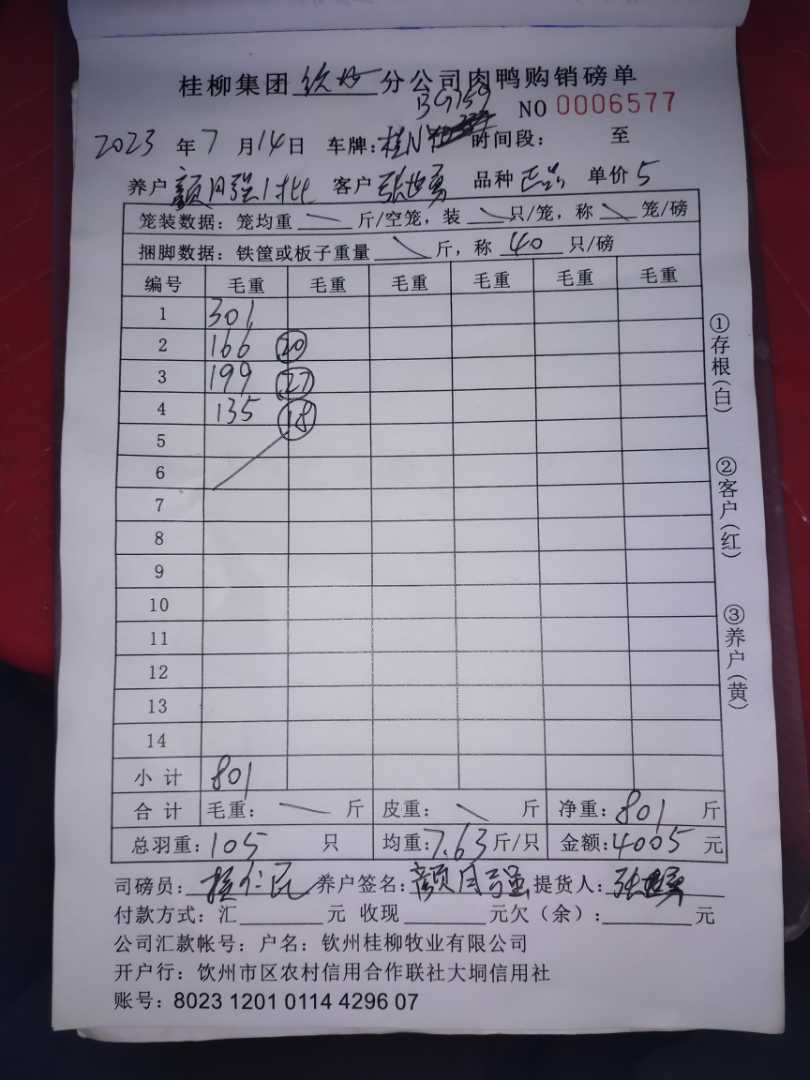 桂柳集团钦州分公司肉鸭购销磅单
BG159
NO 0006577
2023年7月14日 车牌:桂N 时间段: 至
养户 颜月强1批 客户 张世勇 品种 正品 单价 5
笼装数据:笼均重 斤/空笼,装 只/笼,称 笼/磅
捆脚数据:铁筐或板子重量 斤,称 40 只/磅
编号 毛重 毛重 毛重 毛重 毛重 毛重
1 301
2 166 20
3 199 27
4 135 18
5
6
7
8
9
10
11
12
13
14
小计 801
合计 毛重: 斤 皮重: 斤 净重:801 斤
总羽重:105 只 均重:7.63斤/只 金额:4005元
司磅员: 养户签名:颜月强 提货人:张世勇
付款方式:汇 元 收现 元欠(余): 元
公司汇款帐号:户名:钦州桂柳牧业有限公司
开户行:饮州市区农村信用合作联社大垌信用社
账号:8023 1201 0114 4296 07
①存根(白)
②客户(红)
③养户(黄)